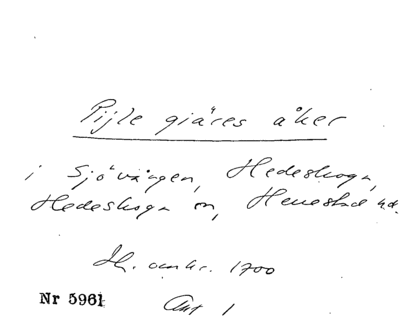 Pijle giäres åker
i Sjövången, Hedeskoga,
Hedeskoga sn, Herrestad hd.
Jh. omkr. 1700
Nr 5961
Ant 1